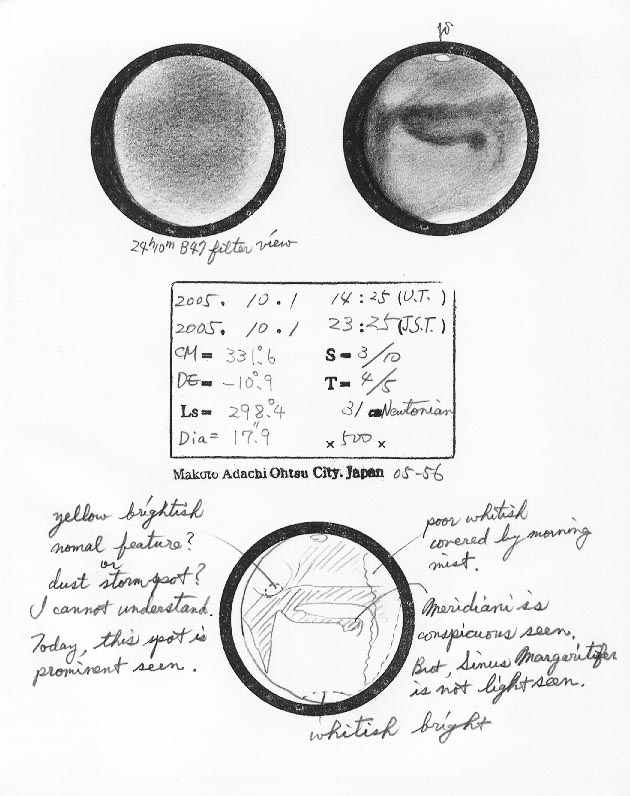 24h10m B47 filter view
2005. 10. 1 14:25 (U.T.)
2005. 10. 1 23:25 (J.S.T.)
CM= 331°.6 S=3/10
DE= -10°.9 T=4/5
Ls= 298°.4 31 cm Newtonian
Dia= 17".9 × 500 ×
Makoto Adachi Ohtsu City. Japan 05-56
yellow brightish
nomal feature?
or
dust storm spot?
I cannot understand.
Today, this spot is
prominent seen.
poor whitish
covered by morning
mist.
Meridiani is
conspicuous seen.
But, Sinus Margaritifer
is not light seen.
whitish bright